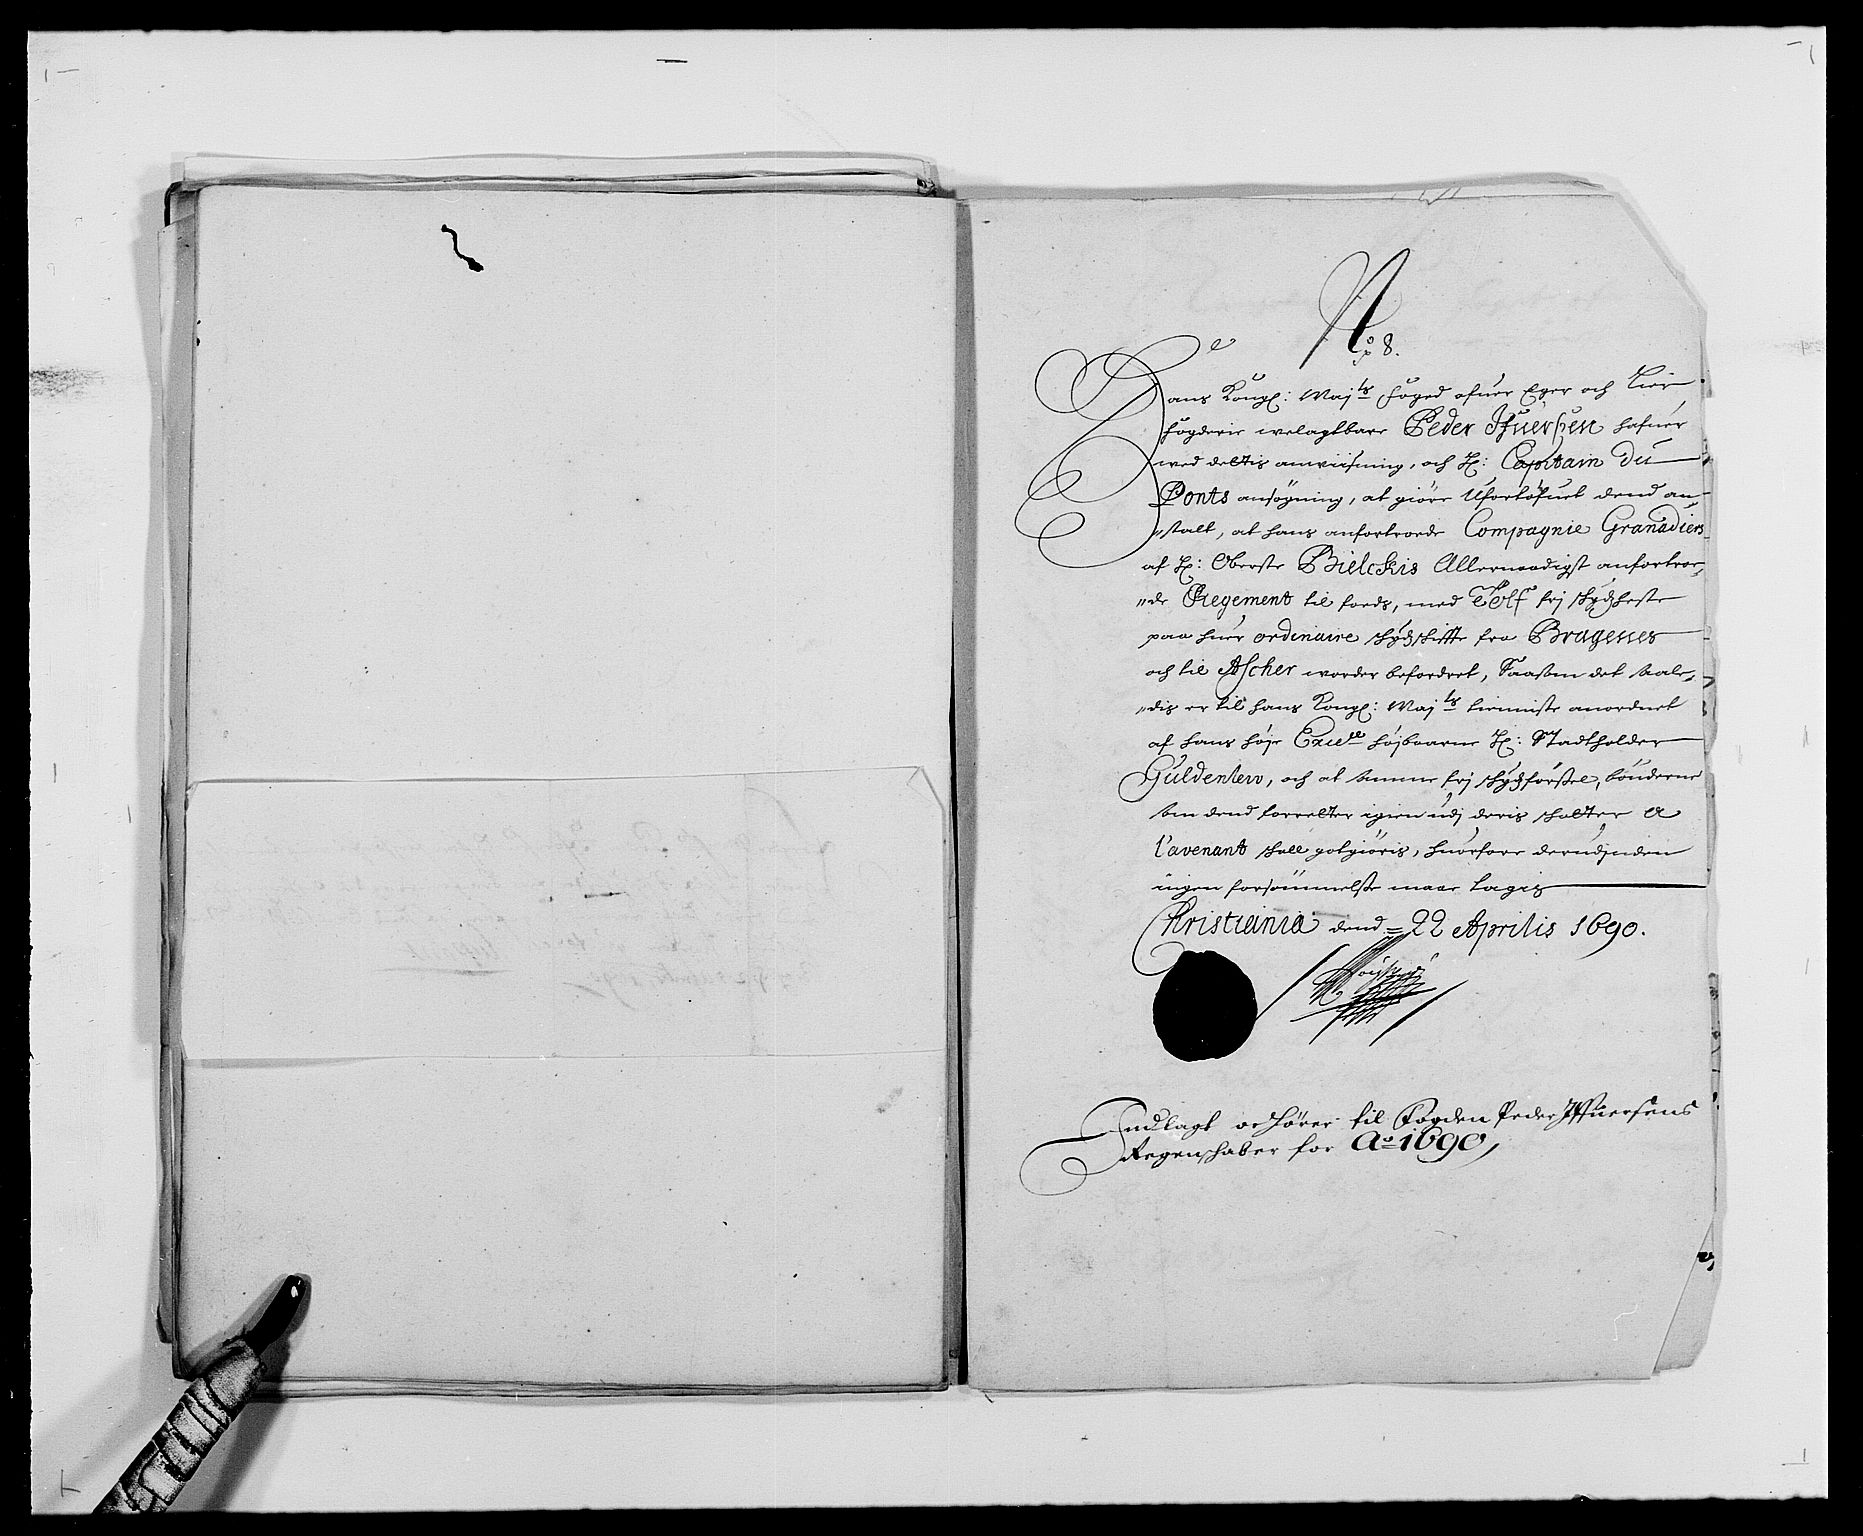 No 8.
Hans Kongl: Maj:ts foged ofuer Eger och Lier
fogderie welagtbare Peder Ifuerszen hafuer
wed dettis anwiisning, och H: Capitain Du
Ponts ansøgning, at giøre Ufortøfuet dend an-
"stalt, at hans anfortroede Compagnie Granadiers
af H: Oberste Bielckis Allernaadigst anfortroe-
"de Regement til foeds, med Tolf frj skydzheste
paa huer ordinaire skydzskiffte fra Bragenes
och til Ascher worder befordret, Saasom det saale-
"dis er til hans Kongl: Maj:ts tienniste anordnet
af hans høje Excell:ce højbaarne H: Stadtholder
Guldenlew, och at samme frj skydzførszel, bønderne
som dend forretter igien udj deris skatter a
l'avenant skall gotgiøris, huorfore derudjnden
ingen forsømmelsze maae tagis
Christiania dend 22 Aprilis 1690.
Indlagt och hører til Fogden Peder Ifuersens
Regenschaber for Ao 1690,